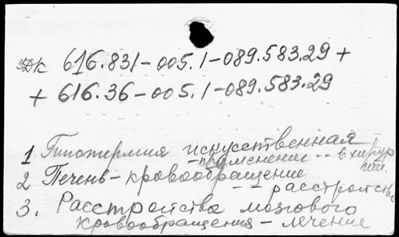 УДК 616.831-005.1-089.583.29 +
+ 616.36-005.1-089.583.29
1 Гипотермия искусственная
- применение -- в хирургии.
2 Печень - кровообращение
-- расстройства
3. Расстройства мозгового
кровообращения - лечение